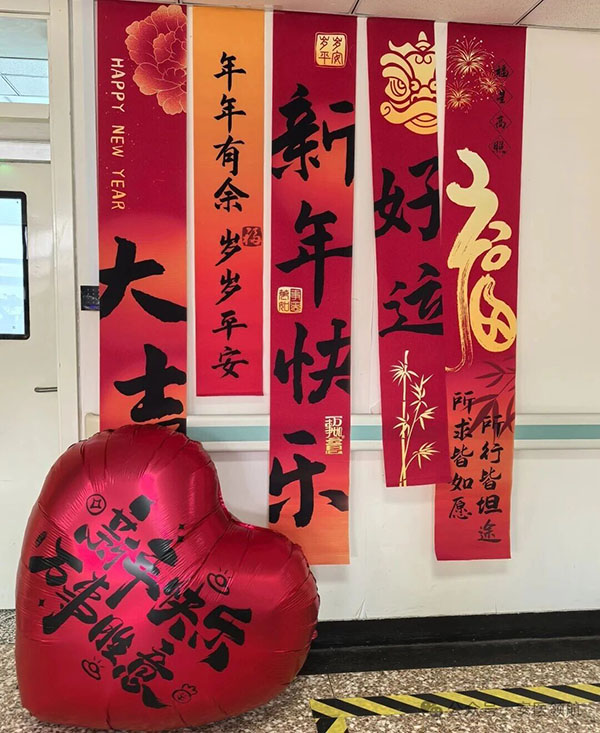 HAPPY NEW YEAR
大吉
年年有余 岁岁平安
福
岁岁平安
新年快乐
万事如意
好运
福星高照
福
所行皆坦途
所求皆如愿
新年快乐
万事胜意
公众号